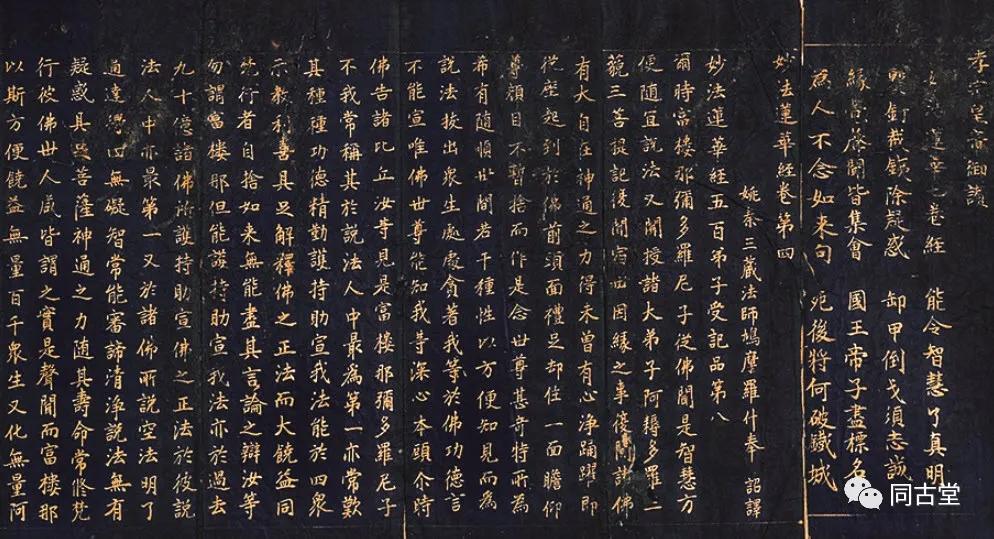 孝宗皇帝細讚
蓮華七卷經 能令智慧了真明
釘裁鎖除疑惑 卸甲倒戈須志誠
緣 聞皆集會 國王帝子盡標名
為人不念如来句 死後將何破鐵城
妙法蓮華經卷第四
姚秦三藏法師鳩摩羅什奉 詔譯
妙法蓮華經五百弟子受記品第八
爾時富樓那彌多羅尼子從佛聞是智慧方
便隨宜說法又聞授諸大弟子阿耨多羅三
藐三菩提記復聞宿世因緣之事復聞諸佛
有大自在神通之力得未曾有心淨踊躍即
從座起到於佛前頭面禮足却住一面瞻仰
尊顏目不暫捨而作是念世尊甚奇特所為
希有隨順世間若干種性以方便知見而為
說法拔出衆生處處貪著我等於佛功德言
不能宣唯佛世尊能知我等深心本願尒時
佛告諸比丘汝等見是富樓那彌多羅尼子
不我常稱其於說法人中最為第一亦常歎
其種種功德精勤護持助宣我法能於四衆
示教利喜具足解釋佛之正法而大饒益同
梵行者自捨如来無能盡其言論之辯汝等
勿謂富樓那但能護持助宣我法亦於過去
九十億諸佛所護持助宣佛之正法於彼說
法人中亦最第一又於諸佛所說空法明了
通達得四無礙智常能審諦清淨說法無有
疑惑具足菩薩神通之力隨其壽命常修梵
行彼佛世人咸皆謂之實是聲聞而富樓那
以斯方便饒益無量百千衆生又化無量阿
同古堂